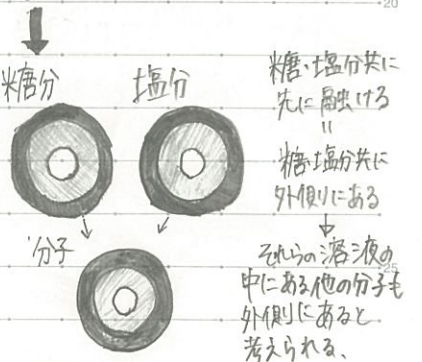 20
糖分
塩分
糖・塩分共に
先に融ける
=
糖・塩分共に
外側にある
分子
それらの溶液の
中にある他の分子も
外側にあると
考えられる。
25